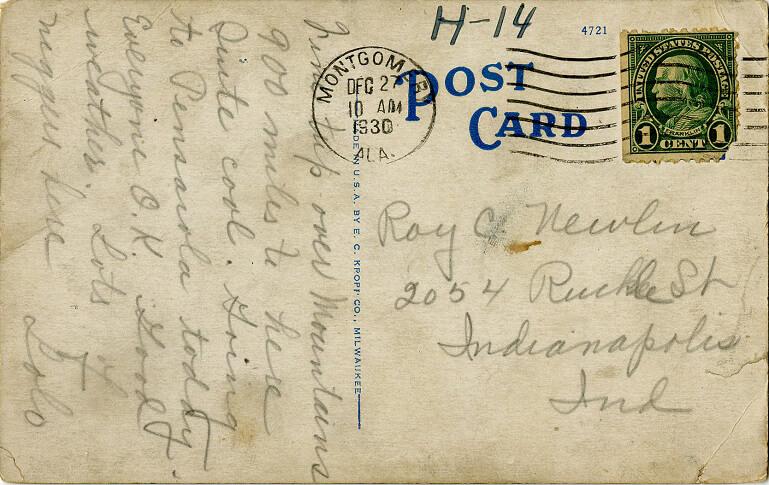 H-14
4721
POST
CARD
MONTGOMERY
DEC 27
10 AM
1930
ALA.
UNITED STATES POSTAGE
FRANKLIN
1 CENT 1
MADE IN U.S.A. BY E. C. KROPP CO., MILWAUKEE
Roy C. Newlin
2054 Ruckle St
Indianapolis
Ind
trip over Mountains
900 miles to here
Quite cool. Going
to Pensacola today.
Everyone O.K. Good
weather. Lots of
niggers here